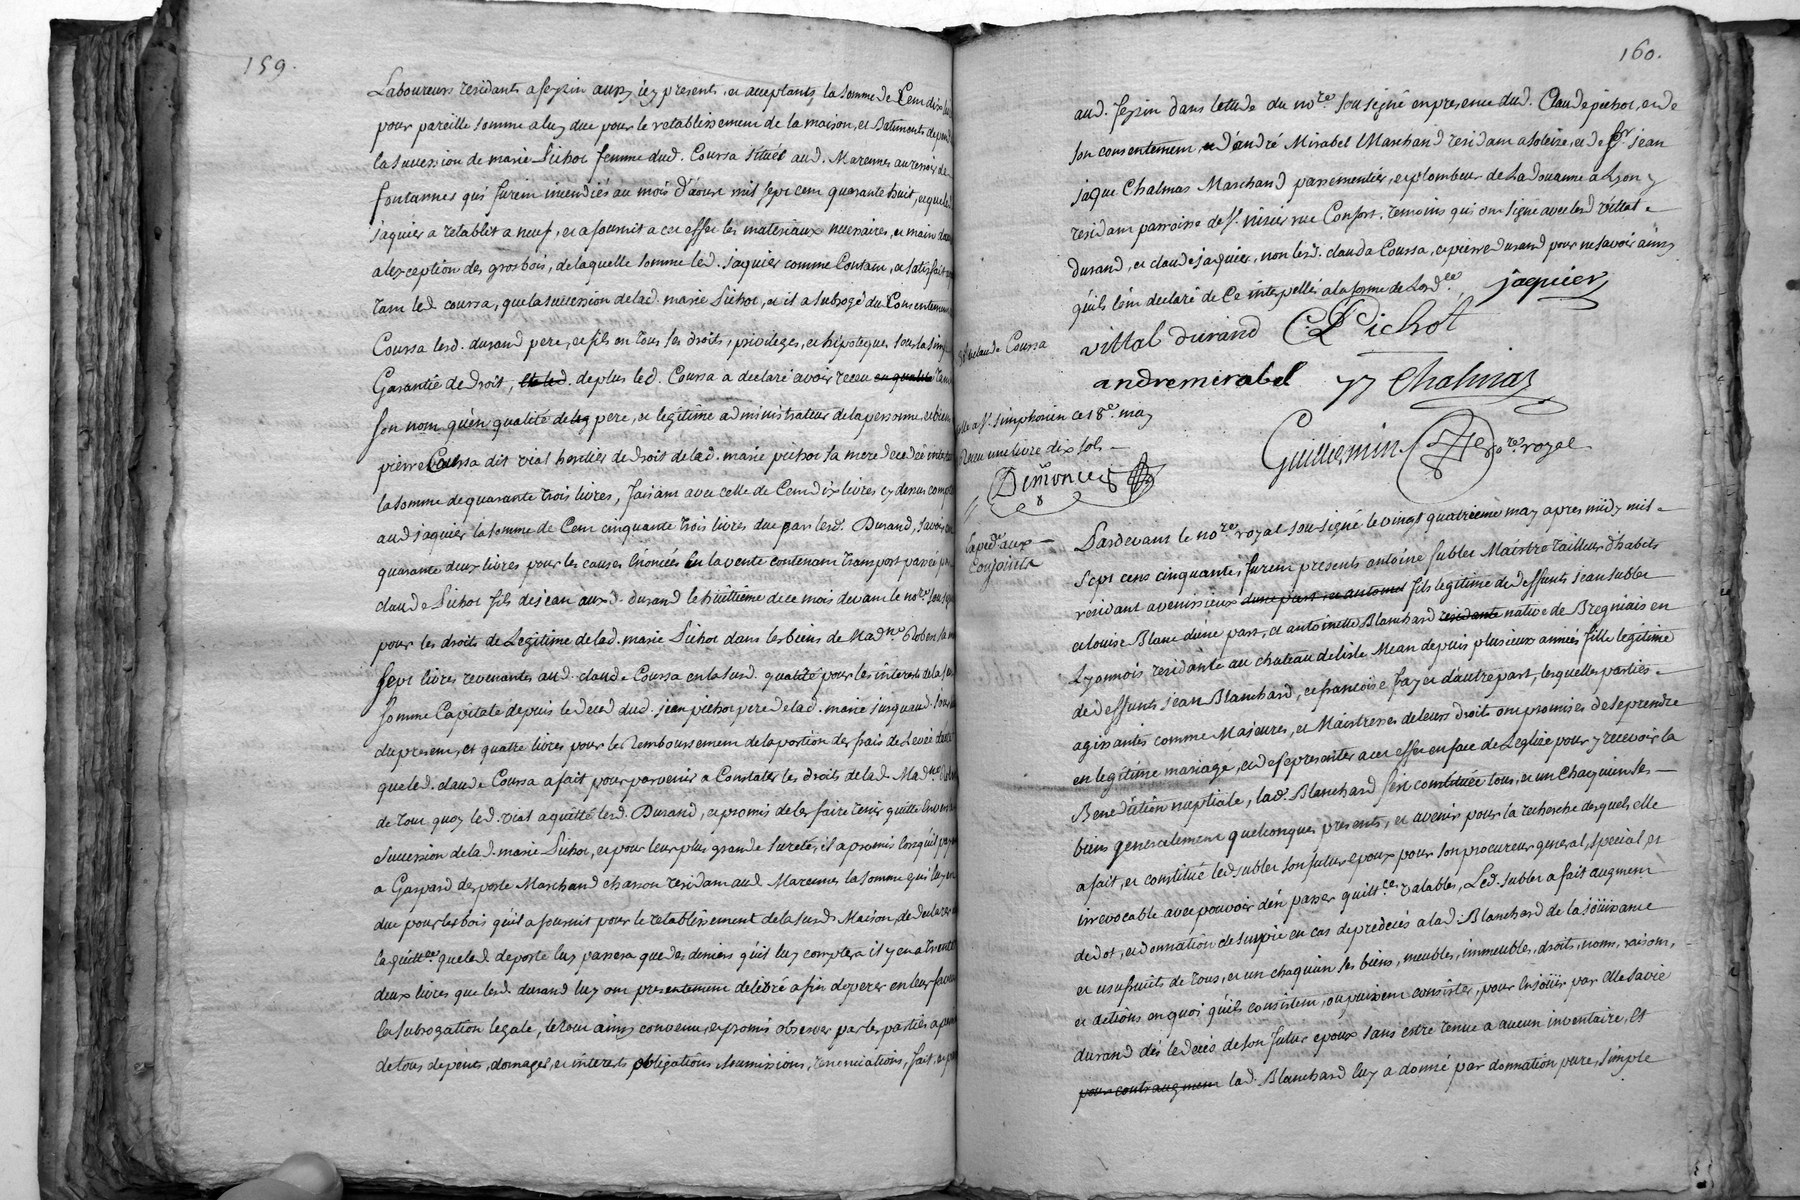 159.
Laboureurs residants a feysin aussy icy presents, et acceptants la somme de Cent dix
pour pareille somme a luy due pour le retablissement de la maison, et Batiments
la sucession de marie Pichot femme dud. Coursa situés aud. Marennes au terroir de
fontannes qui furent incendiés au mois d'aoust mil sept cent quarante huit, et que led.
jaquier a retablit a neuf, et a fournit a cet effet les materiaux necessaires, et main
a l'exception des gros bois, de laquelle somme led. jaquier comme Contant, et satisfait
tant led coursa, que la sucession de lad. marie Pichot, et il a subrogé du Consentement
Coursa lesd. durand pere, et fils en tous ses droits, privileges, et hipoteques sous la
Garantie de droit, et led. de plus led. Coursa a declaré avoir receu en qualité tant
son nom qu'en qualité de pere, et legitime administrateur de la personne, et biens
pierre Coursa dit vial heritier de droit de lad. marie pichot sa mere decedée
la somme de quarante trois livres, faisant avec celle de Cent dix livres cy dessus
aud jaquier la somme de Cent cinquante trois livres due par lesd. Durand, savoir
quarante deux livres pour les causes énoncées en la vente contenant transport passée
claude Pichot fils de jean auxd. durand le huittieme de ce mois devant le no.re
pour les droits de Legitime de lad. marie Pichot dans les biens de Mad.ne Roben sa
sept livres revenantes aud. claude Coursa en la susd. qualité pour les interets de la
somme Capitale depuis le deced dud. jean pichot pere de lad. marie jusqu'aud.
du present, et quatre livres pour le Remboursement de la portion des frais de Levée
que led. claude Coursa a fait pour parvenir a Constater les droits de lad. Mad.ne
de tout quoy led. vial a quitté lesd. Durand, et promis de les faire tenir quitte
sucession de lad. marie Pichot, et pour leur plus grande sureté, il a promis lors qu'il
a Gaspard deporte Marchand residant aud. Marennes la somme qu'il luy
due pour les bois qu'il a fournit pour le retablissement de la susd. Maison, de declarer
la quitt.ce que led. deporte luy passera que des deniers qu'il luy comptera il y en a trente
deux livres que lesd. durand luy ont presentement delivré afin d'operer en leur faveur
la subrogation legale, le tout ainsy convenu, et promis observer par les parties a peine
de tous depens, domages, et interets obligations, soumissions, renonciations, fait, et
160.
aud. feysin dans letude du no.re sousigné en presence dud. Claude pichot, et de
son consentement, et d'andré Mirabel Marchand residant a solaise, et de sr. jean
jaque Chalmas Marchand passementier, et plombeur de La douanne a Lyon y
residant parroisse de St. nisier rue Confort. temoins qui ont signé avec lesd vittal
durand, et claude jaquier, non lesd. claude Coursa, et pierre durand pour ne savoir ainsy
qu'ils l'ont declaré de Ce interpellés a la forme de Lord.ce
jaquier
vittal durand C. Pichot
andre mirabel JJ Chalmas
Guillermin no.re royal
claude Coursa
a St. simphorien ce 18e. may
Receu une livre dix sols
Conjoints
Pardevant le no.re royal sousigné le vingt quatrieme may apres midy mil
sept cens cinquante, furent presents antoine sublet Maistre tailleur d'habits
residant a venissieux d'une part et antoinet fils legitime de deffunts jean sublet
et louise Blanc d'une part, et antoinette Blanchard residante native de Bregniais en
Lyonnois residante au chateau de lisle Mean depuis plusieurs années fille legitime
de deffunts jean Blanchard, et francoise Fay et d'autre part, lesquelles parties
agissantes comme Majeures, et Maistresses de leurs droits ont promises de se prendre
en legitime mariage, et de se presenter a cet effet en face de Leglise pour y recevoir la
Benediction nuptiale, lad. Blanchard s'est constituée tous, et un chaquun ses
biens generalement quelconques presents, et avenir pour la recherche desquels elle
a fait, et constitué led sublet son futur epoux pour son procureur general, special et
irrevocable avec pouvoir d'en passer quitt.ces valables, Led. sublet a fait augment
de dot, et donnation de survie en cas de predecés a lad. Blanchard de la joüissance
et usufruits de tous, et un chaquun ses biens, meubles, immeubles, droits, noms, raisons,
et actions en quoi qu'ils consistent, ou puissent consister, pour En joüir par elle sa vie
durand dés le decés de son futur epoux sans estre tenue a aucun inventaire, Et
pour contr augment lad. Blanchard luy a donné par donnation pure, simple